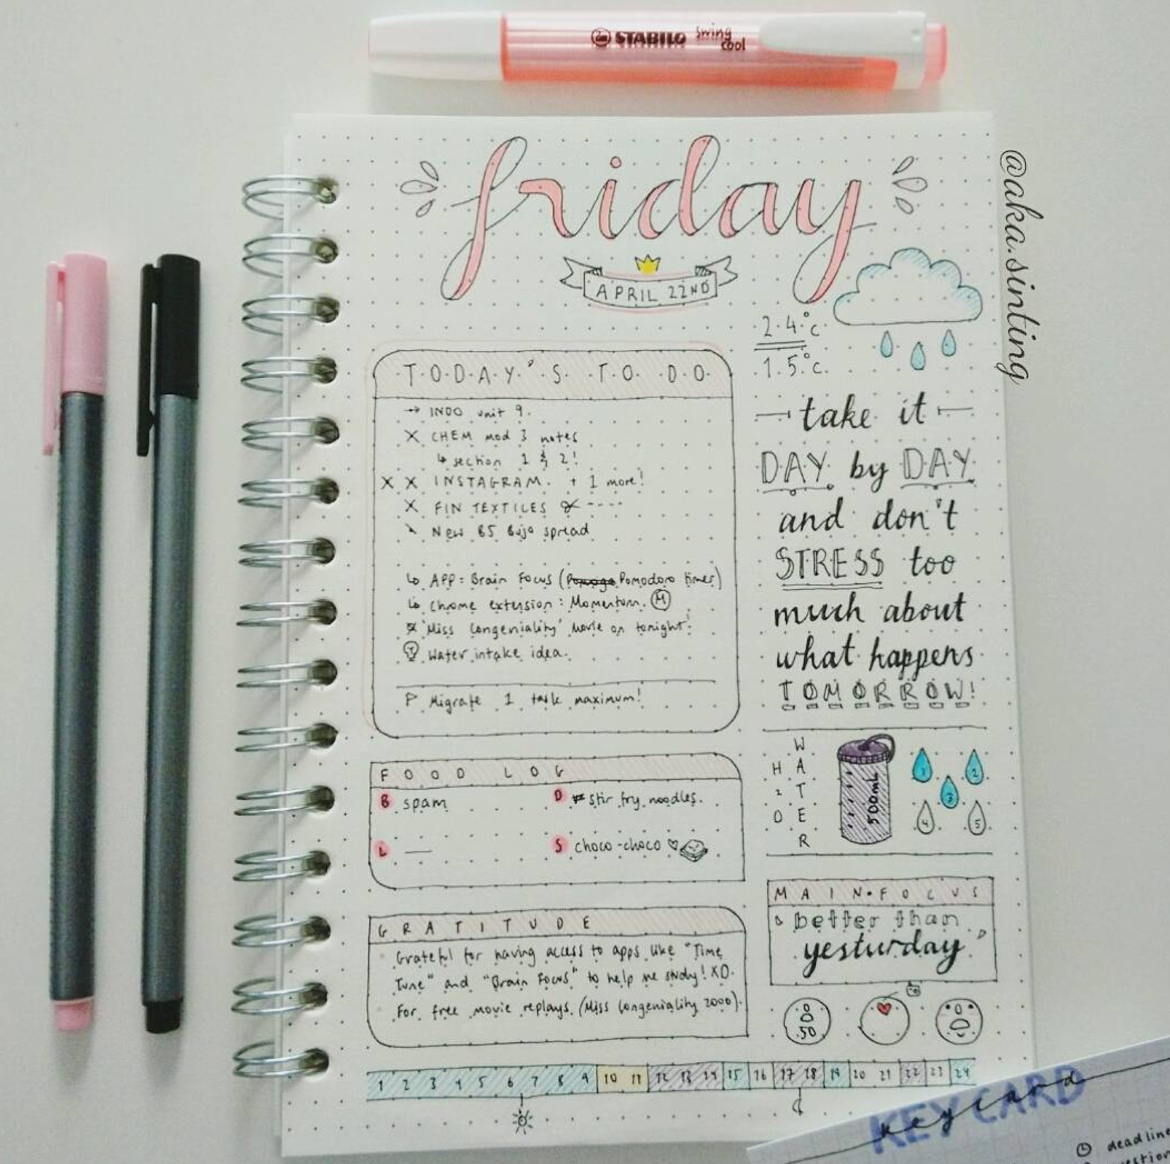 STABILO swing cool
@aka.sinting
friday
APRIL 22ND
2.4.°c
1.5.°c.
TODAY'S TO DO
→ INDO unit 9.
X CHEM mod 3 notes
↳ section 1 & 2!
X X INSTAGRAM. + 1 more!
X FIN TEXTILES ✂ ----
New B5 Bujo spread
↳ APP: Brain Focus (Pomodoro timer)
↳ Chrome extension: Momentum. (M)
'Miss Congeniality' Movie on tonight!
Water intake idea.
P Migrate 1 task maximum!
take it
DAY by DAY
and don't
STRESS too
much about
what happens
TOMORROW!
FOOD LOG
B spam
D stir fry noodles.
L —
S choco-choco ♡
H2O WATER
500mL
1 2
3
4 5
GRATITUDE
Grateful for having access to apps like "Time
Tune" and "Brain Focus" to help me study! XD.
For free movie replays. (Miss Congeniality 2000)
MAIN•FOCUS
better than
yesturday
50
1 2 3 4 5 6 7 8 9 10 11 12 13 14 15 16 17 18 19 20 21 22 23 24
KEY CARD
keycard
deadline